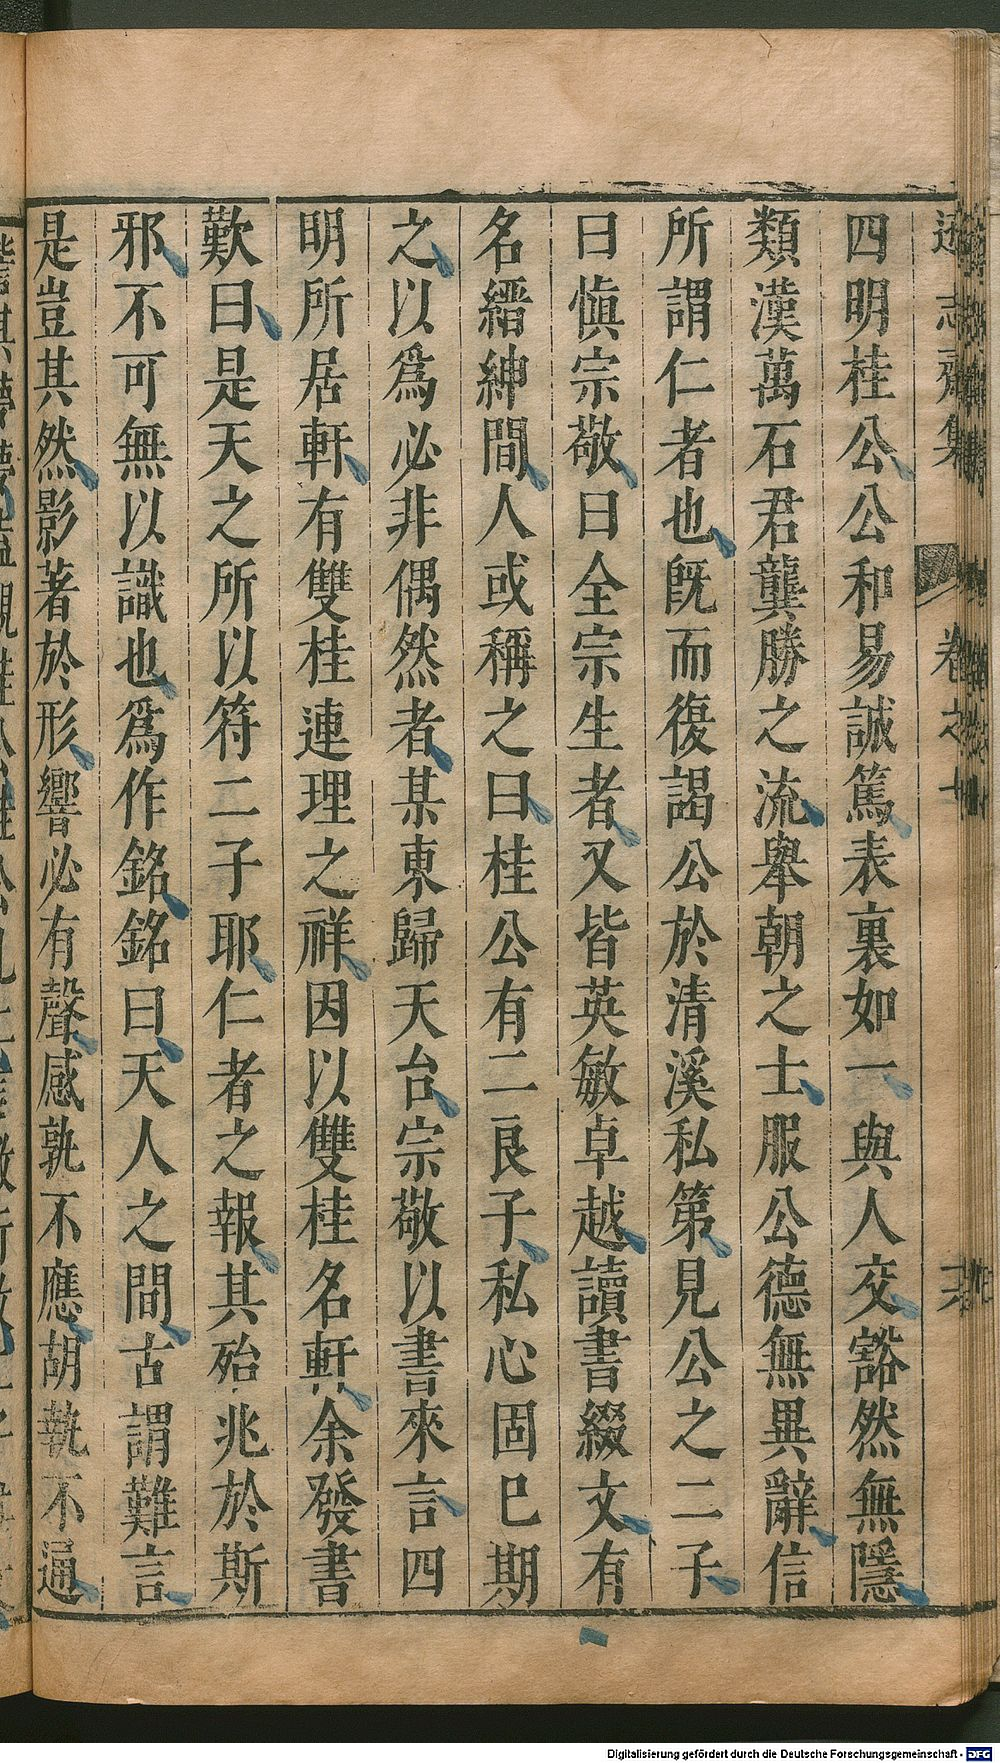 遜志齋集 卷之
四明桂公公和易誠篤表裏如一與人交豁然無隱
類漢萬石君龔勝之流舉朝之士服公德無異辭信
所謂仁者也既而復謁公於清溪私第見公之二子
曰愼宗敬曰全宗生者又皆英敏卓越讀書綴文有
名縉紳間人或稱之曰桂公有二良子私心固已期
之以爲必非偶然者某東歸天台宗敬以書來言四
明所居軒有雙桂連理之祥因以雙桂名軒余發書
歎曰是天之所以符二子耶仁者之報其殆兆於斯
邪不可無以識也爲作銘銘曰天人之間古謂難言
是豈其然影著於形響必有聲感孰不應胡執不通
Digitalisierung gefördert durch die Deutsche Forschungsgemeinschaft - DFG